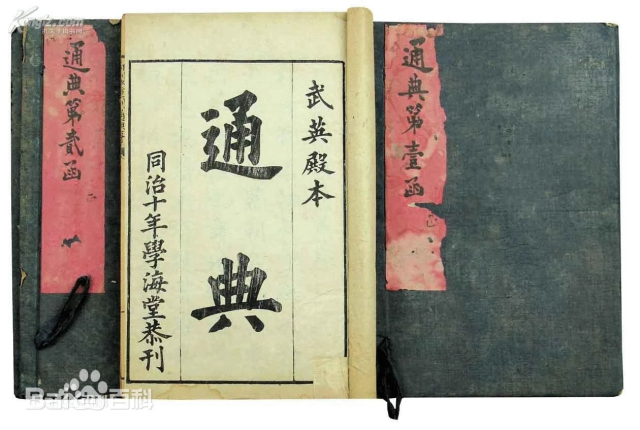 武英殿本
通典
同治十年學海堂恭刊
通典第壹函
通典第貳函
Bai百科